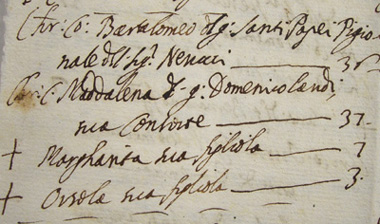 Chr: C: Bartolomeo d g: Santi Papei Pigio
nale del Sig. Nerucci — 38
Chr: C: Maddalena d g: Domenico Landi,
sua Consorte — 37
+ Margharita sua figliola — 7
+ Orsola sua figliola — 3